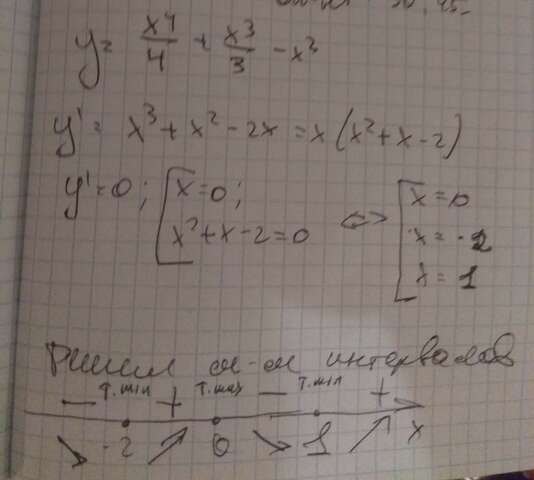 y = x⁴/4 + x³/3 - x²
y' = x³ + x² - 2x = x(x² + x - 2)
y' = 0; [ x = 0; x² + x - 2 = 0 ⇔ [ x = 0 x = -2 x = 1
Решим м-м интервалов
— т.min + т.max — т.min +
↘ -2 ↗ 0 ↘ 1 ↗ x